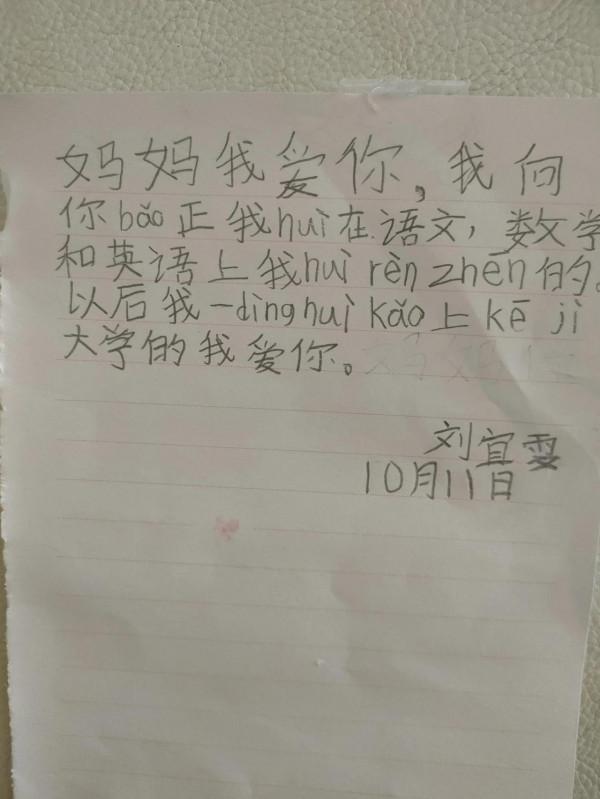 妈妈我爱你,我向
你bǎo正我huì在语文,数学
和英语上我huì rèn zhēn的。
以后我一dìng huì kǎo上kē jì
大学的我爱你。
刘宜雯
10月11日